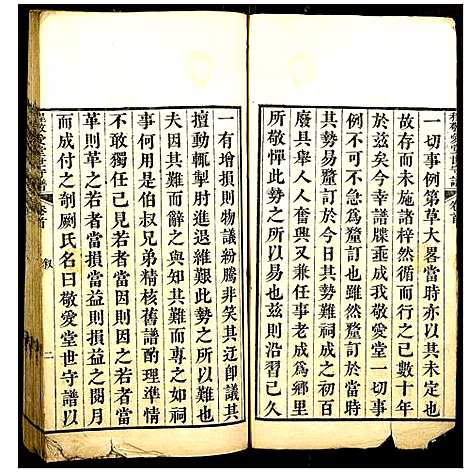 一切事例第草大畧當時亦以其未定也
故存而未施諸梓然而行之已數十年
於茲矣今幸譜牒垂成我敬愛堂一切事
例不可不急爲釐訂也雖然釐訂於今日
其勢易釐訂於今日其勢難祠成之初百
廢具舉人人奮興又兼任事老成爲鄉里
所敬憚此勢之所以易也茲則沿習已久
一有增損則物議紛騰非笑其迂卽議其
擅動輒尤肘進退維艱此勢之所以難也
夫因其難而諉之已如祠
事何用是與伯叔兄弟精核舊譜酌理準情
不敢獨任已見若者當因則因之若者當
革則革之若者當損當益則損益之閱月
而成付之剞劂氏名曰敬愛堂世守譜以
敬愛堂世守譜
卷首
叙
二